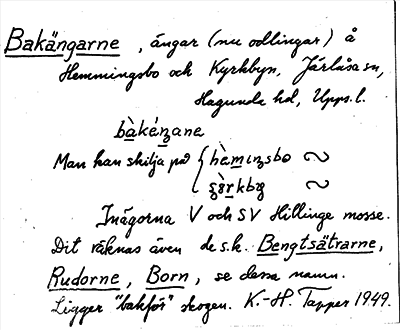 Bakängarne, ängar (nu odlingar) å
Hemmingsbo och Kyrkbyn, Järlåsa sn,
Hagunda hd, Upps. l.
bàkéŋane
Man kan skilja på { hèmıŋsbo ~
rkbg ~
Inägorna V och SV Hillinge mosse.
Dit räknas även de s.k. Bengtsätrarne,
Rudorne, Born, se dessa namn.
Ligger "bakför" skogen. K.-H. Tapper 1949.